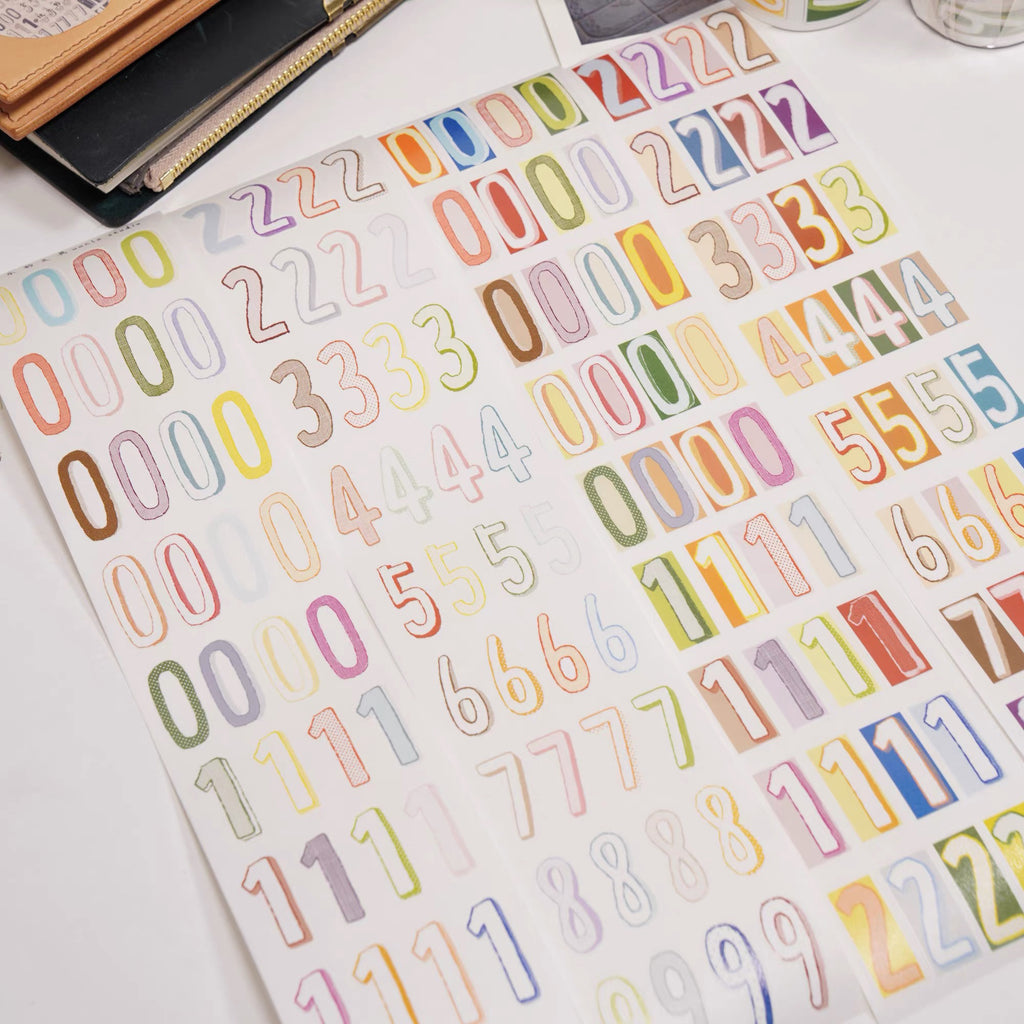 studio
0 0 0 0
0 0 0 0
0 0 0 0
0 0 0 0
0 0 0 0
1 1 1 1
1 1 1 1
1 1 1 1
2 2 2 2
2 2 2 2
3 3 3 3
4 4 4 4
5 5 5 5
6 6 6 6
7 7 7 7
8 8 8 8
9 9 9 9
0 0 0 0
0 0 0 0
0 0 0 0
0 0 0 0
0 0 0 0
1 1 1 1
1 1 1 1
1 1 1 1
2 2 2 2
2 2 2 2
2 2 2 2
3 3 3 3
4 4 4 4
5 5 5 5
6 6 6
7 7